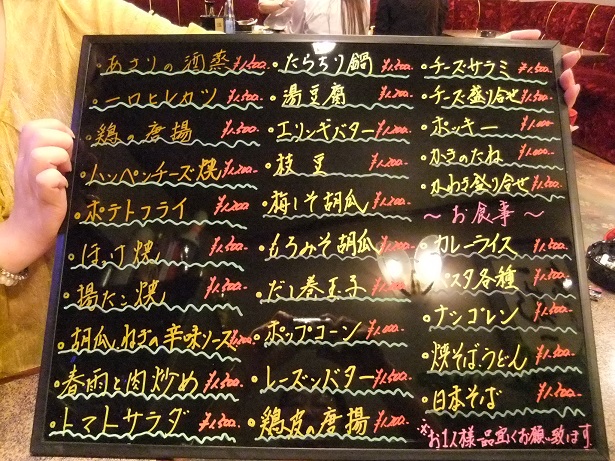 ・あさりの酒蒸 ¥1,500-
・一口ヒレカツ ¥1,500-
・鶏の唐揚 ¥1,500-
・ハンペンチーズ焼 ¥1,200-
・ポテトフライ ¥1,200-
・ほっけ焼 ¥1,500-
・揚たこ焼 ¥1,500-
・胡瓜、ねぎの辛味ソース
・春雨と肉炒め ¥1,500-
・トマトサラダ ¥1,500-
・たらちり鍋 ¥1,500-
・湯豆腐
・エリンギバター
・枝豆 ¥1,200-
・梅しそ胡瓜 ¥1,200-
・もろみそ胡瓜
・だし巻玉子 ¥1,200-
・ポップコーン ¥1,000-
・レーズンバター
・鶏皮の唐揚 ¥1,200-
・チーズサラミ ¥1,500-
・チーズ盛り合せ ¥1,500-
・ポッキー ¥1,000-
・かきのたね ¥1,000-
・かわき盛り合せ ¥1,500-
〜お食事〜
・カレーライス ¥1,500-
・パスタ各種 ¥1,500-
・ナシゴレン ¥1,500-
・焼そばうどん ¥1,500-
・日本そば ¥1,500-
※お1人様一品宜しくお願い致します